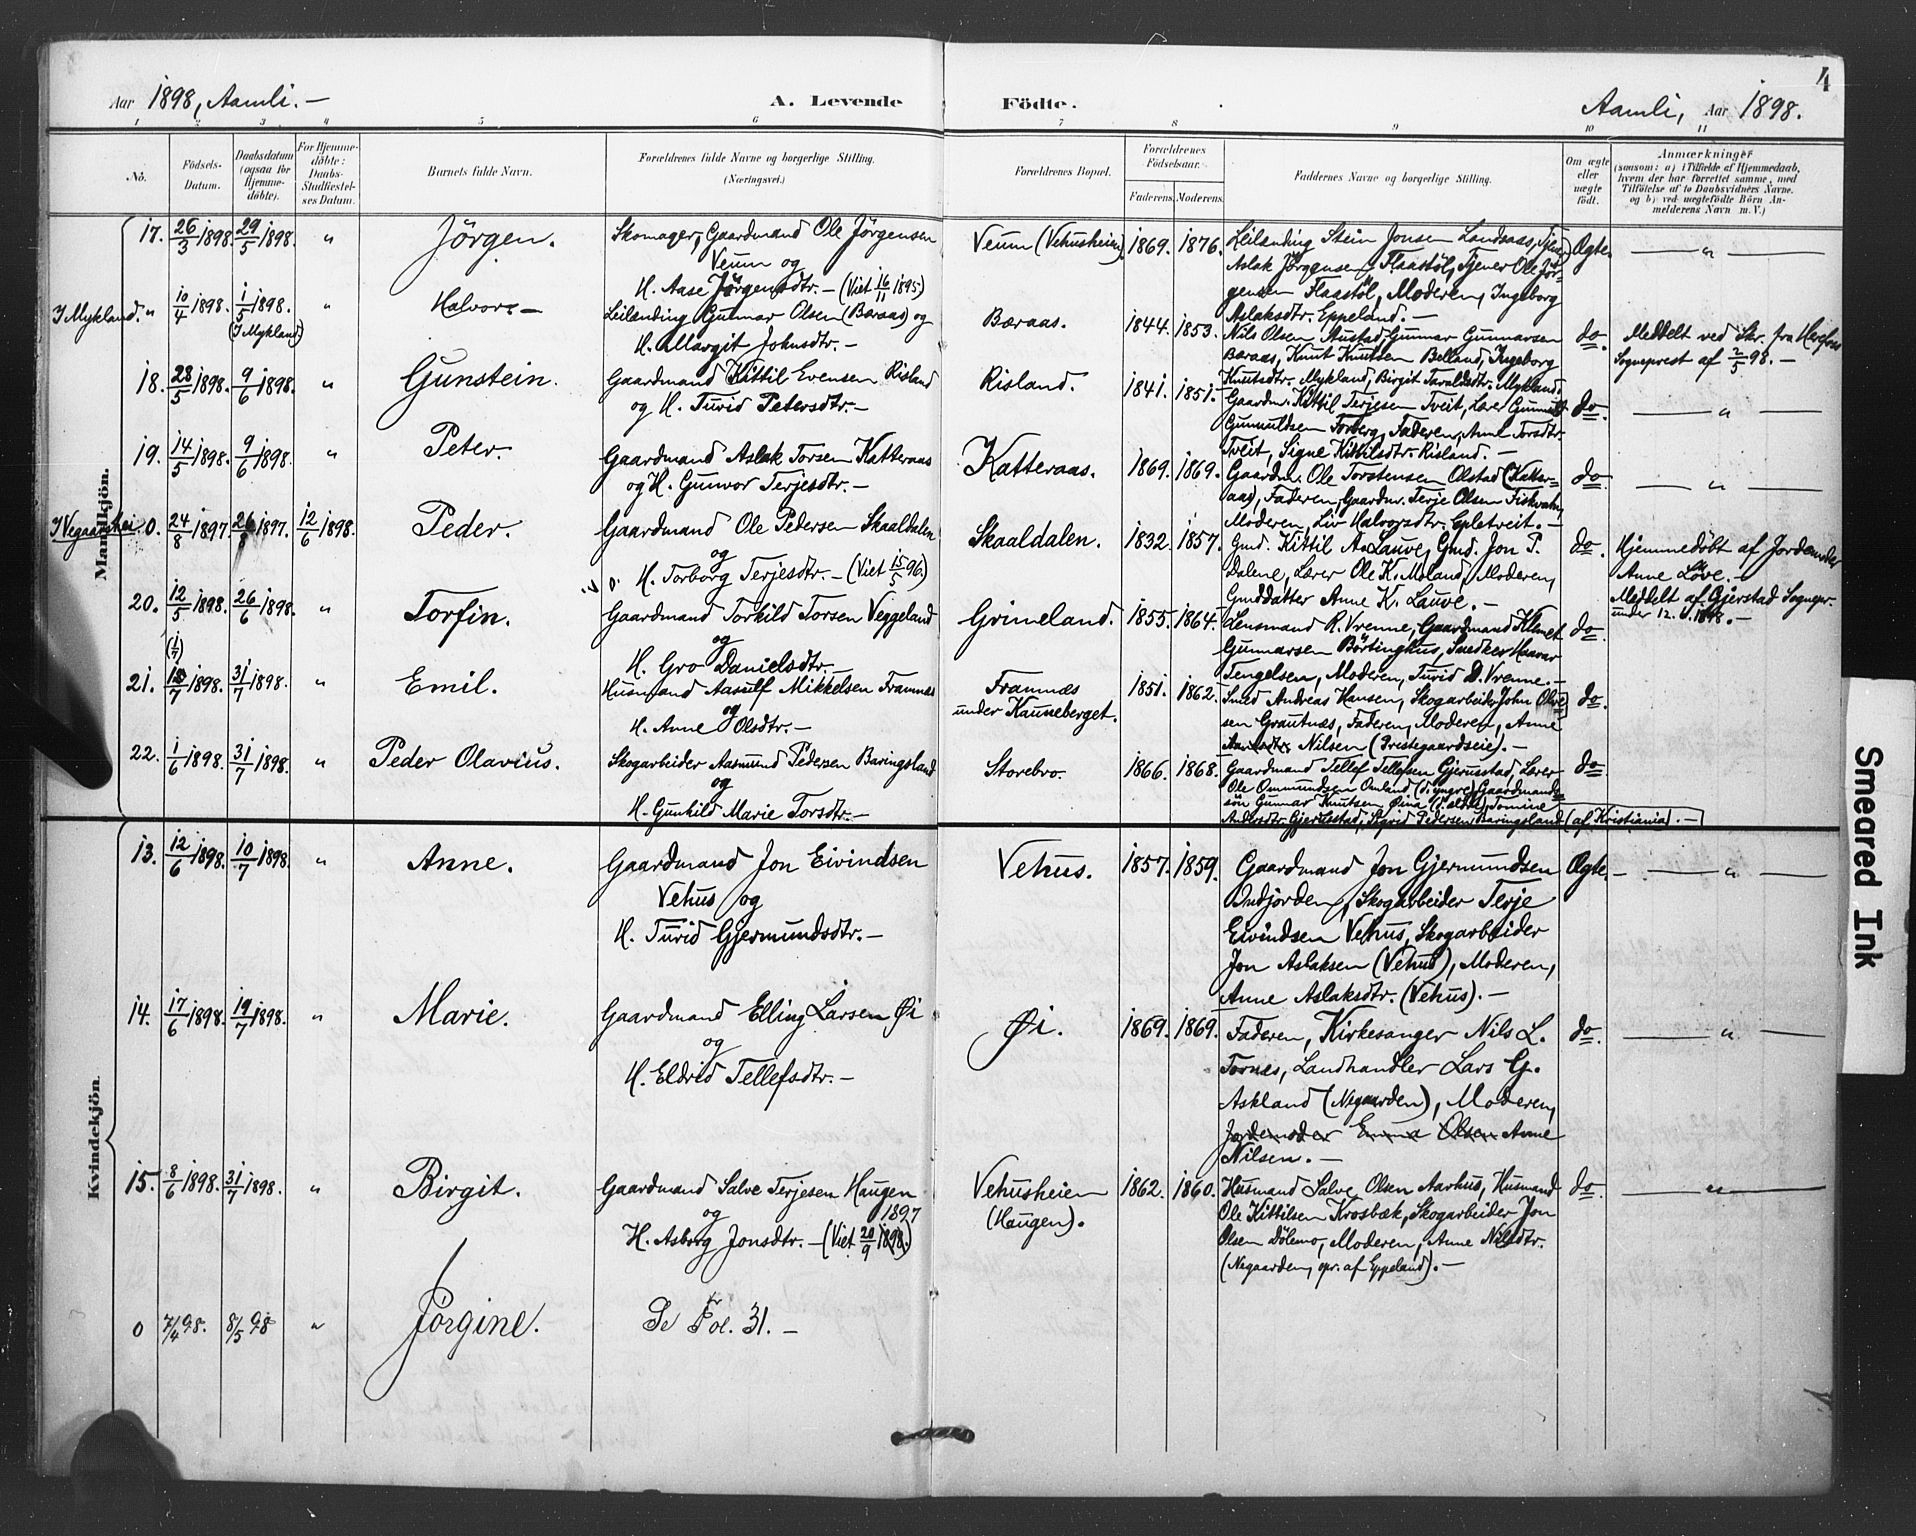 4
Aar 1898, Aamli. –
A. Levende Födte.
Aamli, Aar 1898.
1 2 3 4 5 6 7 8 9 10 11
No.
Födsels-Datum.
Daabsdatum (ogsaa for Hjemme-döbte).
For Hjemme-döbte: Daabs-Stadfæstel-ses Datum.
Barnets fulde Navn.
Forældrenes fulde Navne og borgerlige Stilling. (Næringsvei.)
Forældrenes Bopæl.
Forældrenes Födselsaar.
Faderens. Moderens.
Faddernes Navne og borgerlige Stilling.
Om ægte eller uægte födt.
Anmærkninger
(saasom: a) i Tilfælde af Hjemmedaab,
hvem der har forrettet samme, med
Tilföielse af to Daabsvidners Navne.
og b) ved uægtefödte Börn An-
melderens Navn m. V.)
Mandkjön.
17. 26/3 1898. 29/5 1898. " Jörgen.
Skomager, Gaardmand Ole Jörgensen
Veum og
H. Aase Jörgensdtr. – (Viet 16/11 1895)
Veum (Vehusheien) 1869. 1876.
Leilænding Stein Jonsen Landsaas, Tjener
Aslak Jörgensen Flaastöl, Tjener Ole Jör-
gensen Flaastöl, Moderen, Ingeborg
Aslaksdtr. Eppeland. –
Ægte — " —
I Mykland. " 10/4 1898. 1/5 1898. (I Mykland) " Halvor. –
Leilænding Gunnar Olsen (Bæraas) og
H. Margit Johnsdtr. –
Bæraas. 1844. 1853.
Nils Olsen Austad, Gunnar Gunnarsen
Bæraas, Knut Knutsen Belland, Ingeborg
Knutsdtr. Mykland, Birgit Taraldsdtr. Mykland.
do.
Meddelt ved Skr. fra
Sogneprest af 2/5 98. –
18. 28/5 1898. 9/6 1898. " Gunstein.
Gaardmand Kittil Evensen Risland
og H. Turid Petersdtr. –
Risland. 1841. 1851.
Gaardmr. Kittil Terjesen Tveit, Lærer
Gunnuldsen Forberg, Faderen, Anne Torsdtr.
Tveit, Signe Kittilsdtr. Risland. –
do. — " —
19. 14/5 1898. 9/6 1898. " Peter.
Gaardmand Aslak Torsen Katteraas
og H. Gunvor Terjesdtr. –
Katteraas. 1869. 1869.
Gaardmr. Ole Torstensen Olstad (Katter-
aas), Faderen, Gaardmr. Terje Olsen Fiskvatn,
Moderen, Liv Halvorsdtr. Epletveit. –
do. — " —
I Vegaarshei 0. 24/8 1897. 26/8 1897. 12/6 1898. Peder.
Gaardmand Ole Pedersen Skaaldalen
og
H. Torborg Terjesdtr. – (Viet 15/5 96.)
Skaaldalen. 1832. 1857.
Gmd. Kittil A. Lauve, Gmd. Jon P.
Dalene, Lærer Ole K. Moland, Moderen,
Gmddatter Anne K. Lauve. –
do.
Hjemmedöbt af Jordemoder
Anne Löve. –
Meddelt af Gjerstad Sognepr.
under 12.6.1898. –
20. 12/5 1898. 26/6 1898. " Torfin.
Gaardmand Torkild Torsen Veggeland
og
H. Gro Danielsdtr. –
Grimeland. 1855. 1864.
Lensmand R. Vrenne, Gaardmand Klemet
Gunnarsen Börtinghus, Snedker Haavar
Tengelsen, Moderen, Turid D. Vrenne. –
do.
(1/7)
21. 15/7 1898. 31/7 1898. " Emil.
Husmand Aasulf Mikkelsen Framnæs
og
H. Anne Olsdtr. –
Framnæs
under Kauneberget. 1851. 1862.
Smed Andreas Hansen, Skogarbeider John Olav-
sen Grautnæs, Faderen, Moderen, Anne
Nilsen (Prestegaardseie). –
do.
22. 1/6 1898. 31/7 1898. " Peder Olavius.
Skogarbeider Aasmund Pedersen Baringsland
og
H. Gunhild Marie Torsdtr. –
Storebro. 1866. 1868.
Gaardmand Tellef Tellefsen Gjerusstad, Lærer
Ole Ommundsen Omland (d. yngre), Gaardmands-
sön Gunnar Knutsen Öina (d. eldre), Tomine
Andersdtr. Gjerusstad, Sigrid Pedersen Baringsland (af Kristiania). –
do.
Kvindekjön.
13. 12/6 1898. 10/7 1898. " Anne.
Gaardmand Jon Eivindsen
Vehus og
H. Turid Gjermundsdtr. –
Vehus. 1857. 1859.
Gaardmand Jon Gjermundsen
Indjorden, Skogarbeider Terje
Eivindsen Vehus, Skogarbeider
Jon Aslaksen (Vehus), Moderen,
Anne Aslaksdtr. (Vehus). –
Ægte. — " —
14. 17/6 1898. 19/7 1898. " Marie.
Gaardmand Elling Larsen Øi
og
H. Eldrid Tellefsdtr. –
Øi. 1869. 1869.
Faderen, Kirkesanger Nils L.
Tornes, Landhandler Lars G.
Askland (Negaarden), Moderen,
Jordemoder Emma Olsen Anne
Nilsen. –
do. — " —
15. 8/6 1898. 31/7 1898. " Birgit.
Gaardmand Salve Terjesen Haugen
og 1897
H. Asborg Jonsdtr. – (Viet 20/9 1898.)
Vehusheien
(Haugen). 1862. 1860.
Husmand Salve Olsen Aarhus, Husmand
Ole Kittilsen Krosbæk, Skogarbeider Jon
Olsen Dölemo, Moderen, Anne Nilsdtr.
(Negaarden, opr. af Eppeland). –
do. — " —
0 7/4 98. 8/5 98 " Jörgine.
Se Fol. 31. –
Smeared Ink